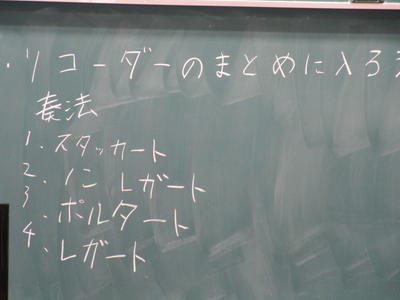 ・リコーダーのまとめに入ろう
奏法
1、スタッカート
2、ノンレガート
3、ポルタート
4、レガート